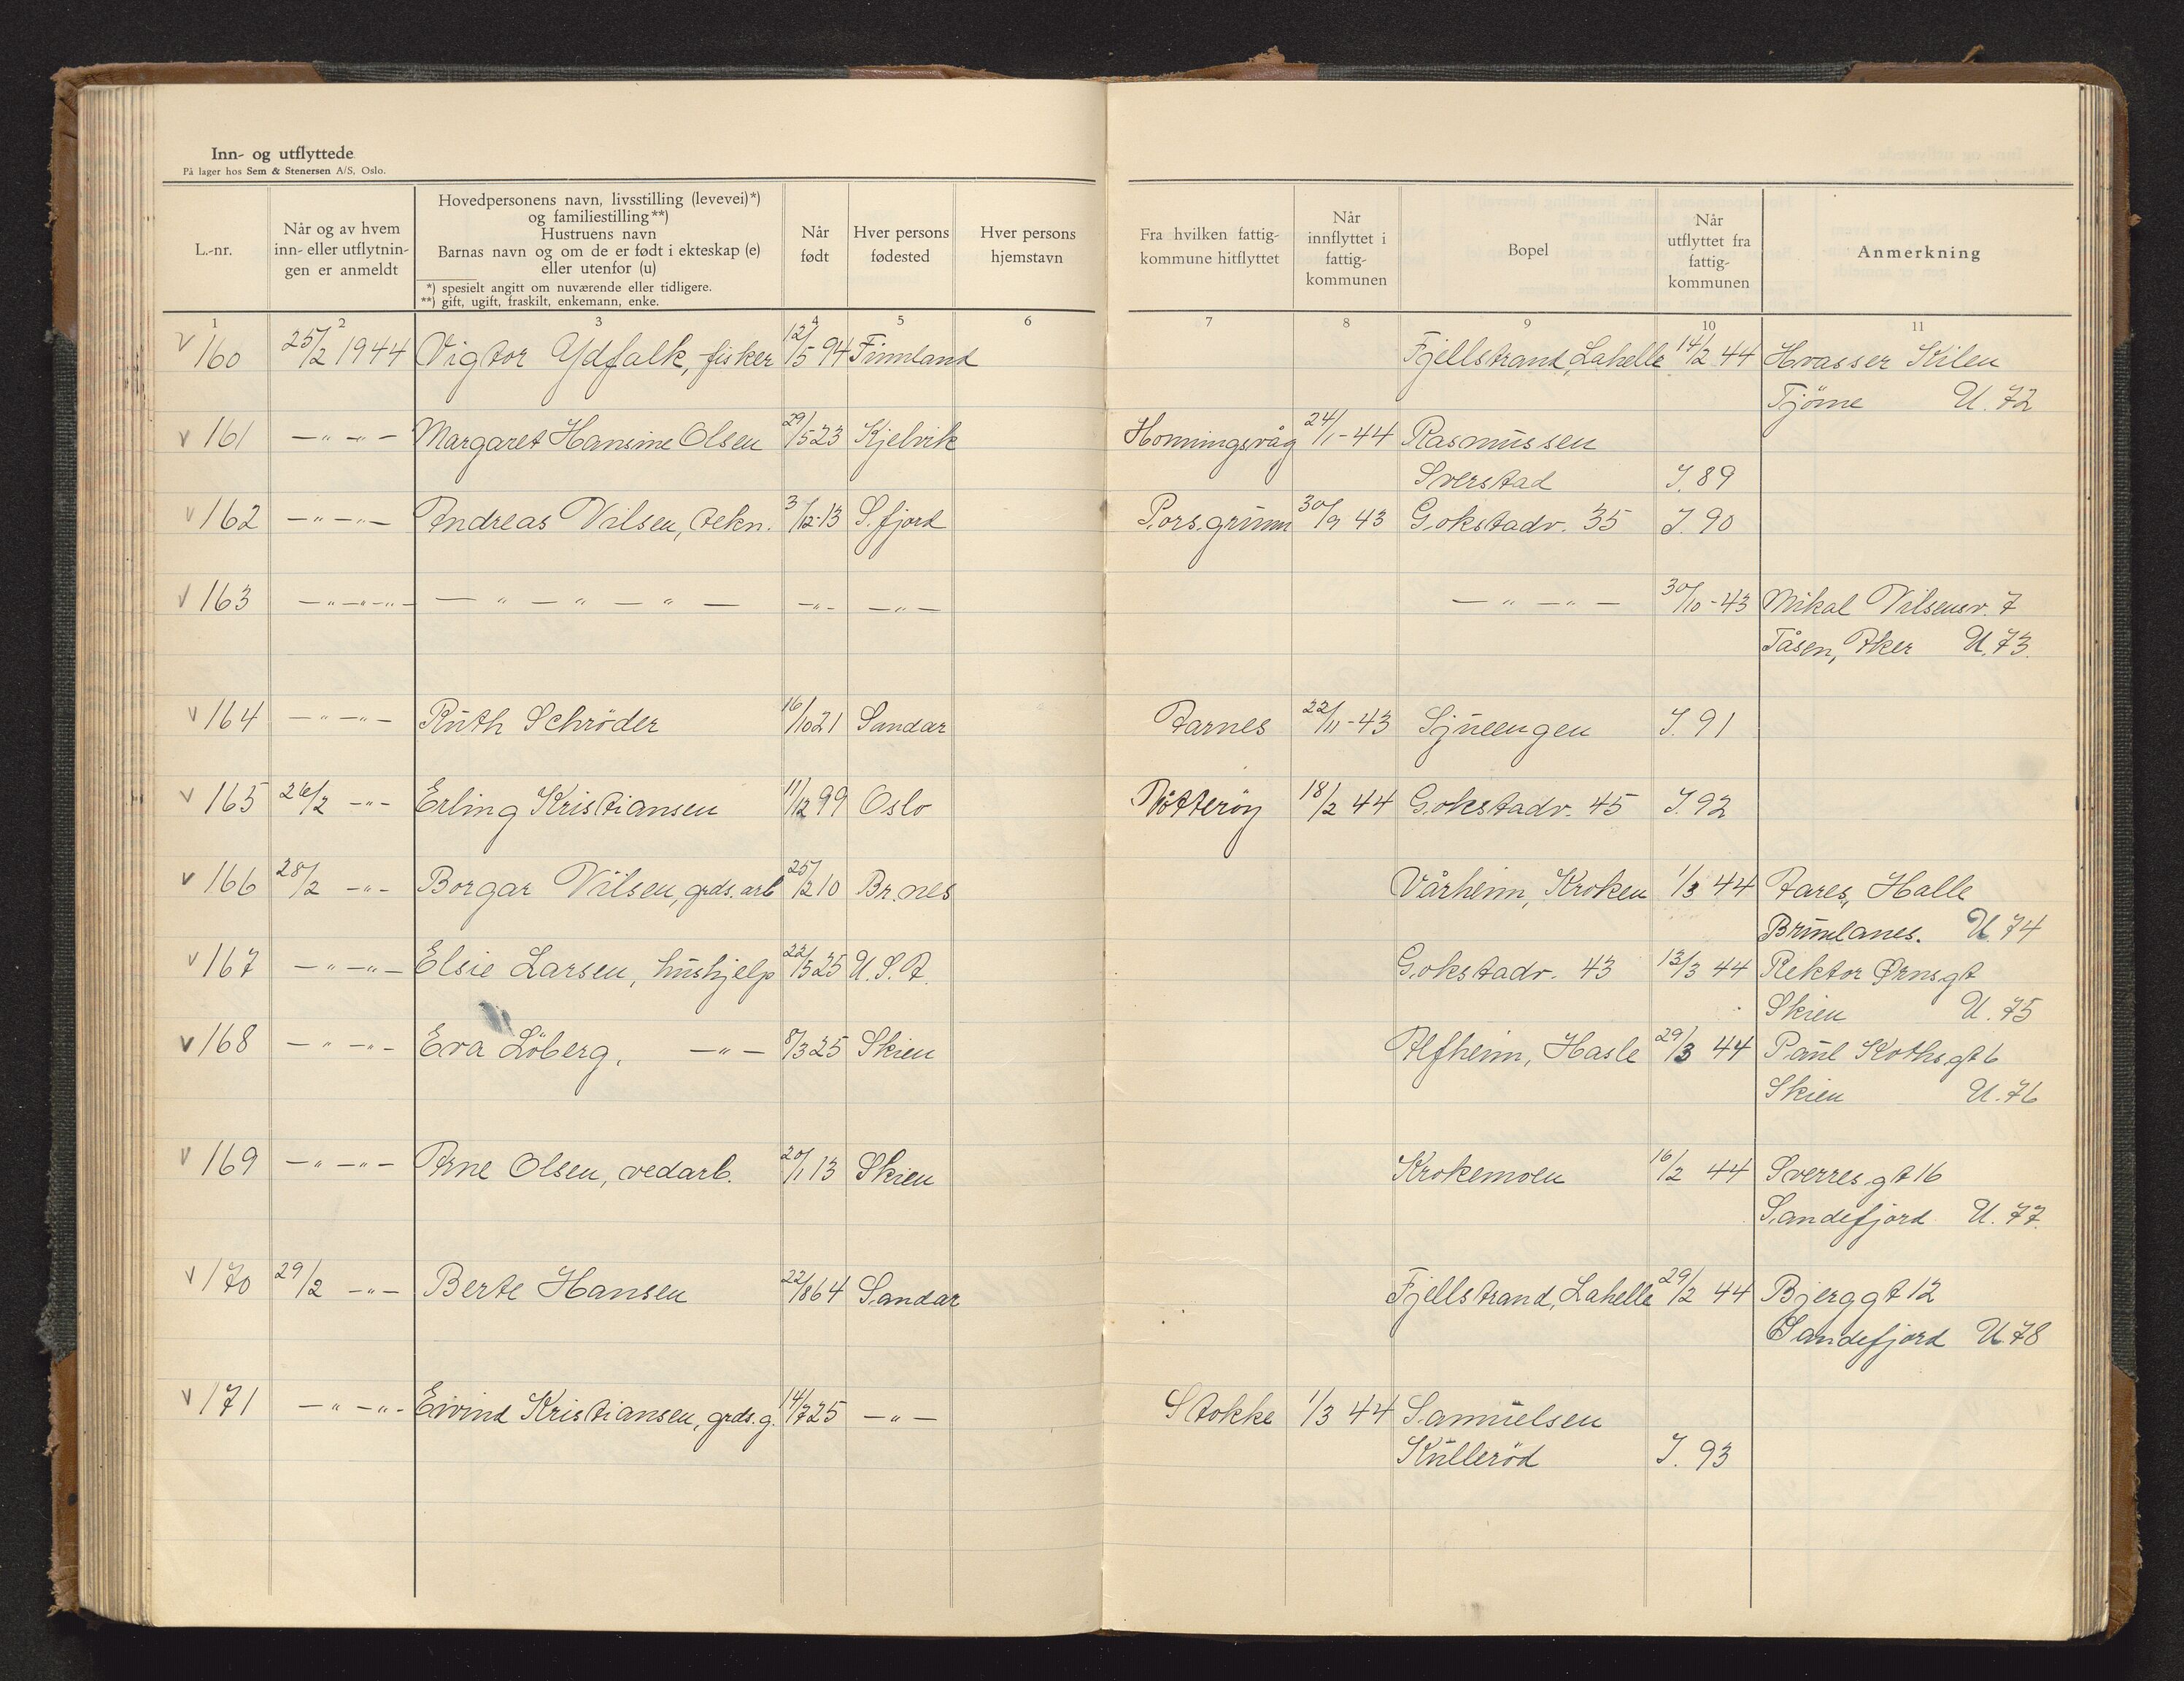 Inn- og utflyttede
På lager hos Sem & Stenersen A/S, Oslo.
L.-nr.
Når og av hvem
inn- eller utflytnin-
gen er anmeldt
Hovedpersonens navn, livsstilling (levevei)*)
og familiestilling**)
Hustruens navn
Barnas navn og om de er født i ekteskap (e)
eller utenfor (u)
*) spesielt angitt om nuværende eller tidligere.
**) gift, ugift, fraskilt, enkemann, enke.
Når
født
Hver persons
fødested
Hver persons
hjemstavn
Fra hvilken fattig-
kommune hitflyttet
Når
innflyttet i
fattig-
kommunen
Bopel
Når
utflyttet fra
fattig-
kommunen
Anmerkning
1 2 3 4 5 6 7 8 9 10 11
v 160 25/2 1944 Vigtor Ydfalk, fisker 12/5 94 Finnland Fjellstrand, Lahelle 14/2 44 Hvasser Kilen
Tjöme U. 72
v 161 —"—"— Margaret Hansine Olsen 29/5 23 Kjelvik Honningsvåg 24/1-44 Rasmussen
Sverstad I. 89
v 162 —"—"— Andreas Nilsen, tekn. 3/12-13 S.fjord Porsgrunn 30/9 43 Gokstadv. 35 I. 90
v 163 —"—"— —"—"—"— —"— —"— —"—"— 30/10-43 Nikal Nilsensv. 7
Tåsen, Aker U. 73.
v 164 —"—"— Ruth Schrøder 16/10 21 Sandar Farnes 22/11-43 Sjueengen I. 91
v 165 26/2 —"— Erling Kristiansen 11/12 99 Oslo Nøtterøy 18/2 44 Gokstadv. 45 I. 92
v 166 28/2 —"— Borgar Nilsen, grds.arb 25/2 10 Br.nes Vårheim, Kroken 1/3 44 Fares, Halle
Brunlanes. U. 74
v 167 —"—"— Elsie Larsen, hushjelp 22/5 25 U.S.A. Gokstadv. 43 13/3 44 Rektor Ørnsgt
Skien U. 75
v 168 —"—"— Eva Löberg, —"— 8/3 25 Skien Alfheim, Hasle 29/3 44 Paul Kothsgt 6
Skien U. 76
v 169 —"—"— Arne Olsen, vedarb. 20/1 13 Skien Krokemoen 16/2 44 Sverresgt 16
Sandefjord U. 77.
v 170 29/2 —"— Berte Hansen 22/8 64 Sandar Fjellstrand, Lahelle 29/2 44 Bjerggt 12
Sandefjord U. 78
v 171 —"—"— Eivind Kristiansen, grds.g. 14/7 25 —"— Stokke 1/3 44 Samuelsen
Kullerød I. 93